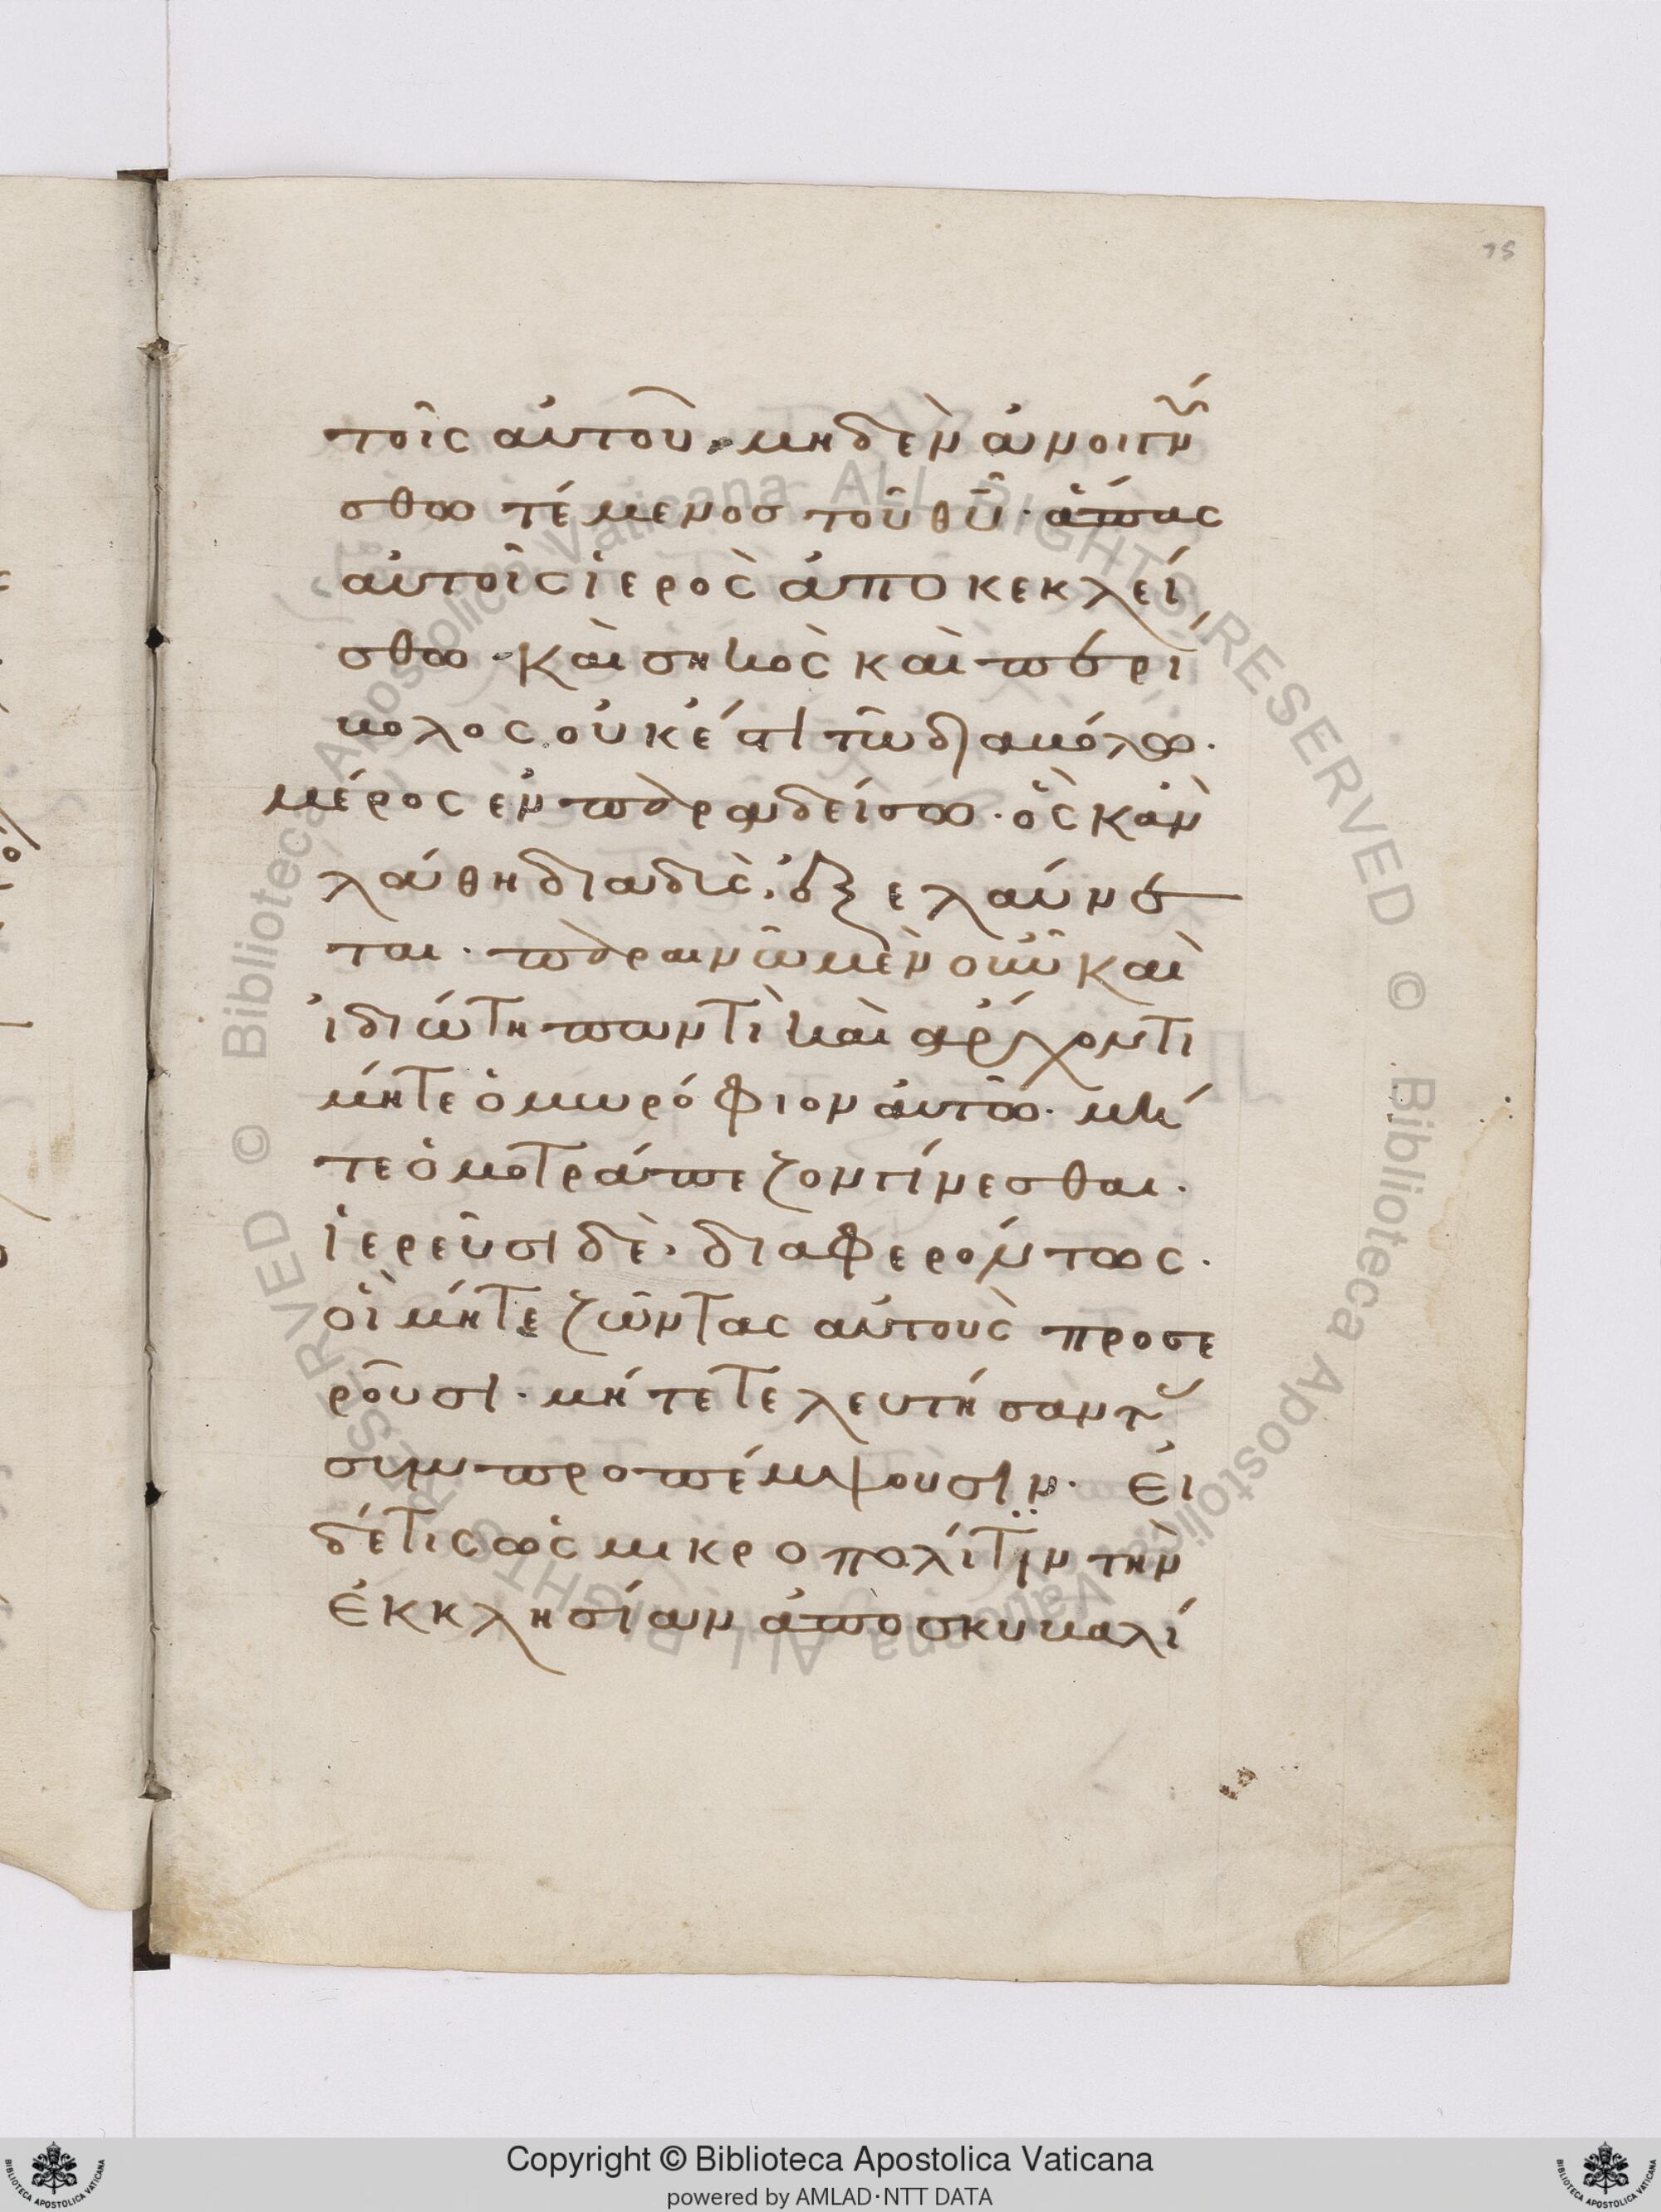 75
τοῖς αὐτοῦ. μηδὲν ἀνοιγνύ
σθω τέμενος τοῦ θῦ. ἅπας
αὐτοῖς ἱερὸς ἀποκεκλεί
σθω. καὶ σηκὸς καὶ περί
βολος οὐκ ἔστι τῶ διαβόλω.
μέρος ἐν παραδείσω. ὃς κἂν
λάθη διαδὺς. ἐξελαύνε
ται. παραινῶ μὲν οὖν καὶ
ἰδιώτη παντὶ καὶ ἄρχοντι
μήτε ὁμωρόφιον αὐτῶ. μή
τε ὁμοτράπεζον γίνεσθαι.
ἱερεῦσι δὲ. διαφερόντως.
οἳ μήτε ζῶντας αὐτοὺς προσε
ροῦσι. μήτε τελευτήσαντας
συμπροπέμψουσιν. Εἰ
δέ τις ὡς μικροπολίτϊν τὴν
ἐκκλησίαν ἀποσκυβαλί
Copyright © Biblioteca Apostolica Vaticana
powered by AMLAD·NTT DATA